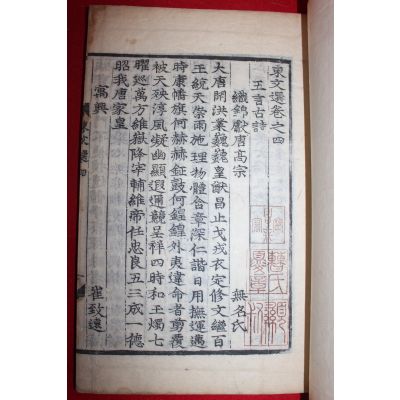 東文選卷之四
五言古詩
織錦獻唐高宗 無名氏
大唐開洪業巍巍皇猷昌止戈戎衣定修文繼百
王統天崇雨施理物體含章深仁諧日用撫運邁
時康幡旗何赫赫鉦鼓何鍠鍠外夷違命者剪覆
被天殃淳風凝幽顯遐邇競呈祥四時和玉燭七
曜巡萬方維嶽降宰輔維帝任忠良五三成一德
昭我唐家皇
寓興 崔致遠